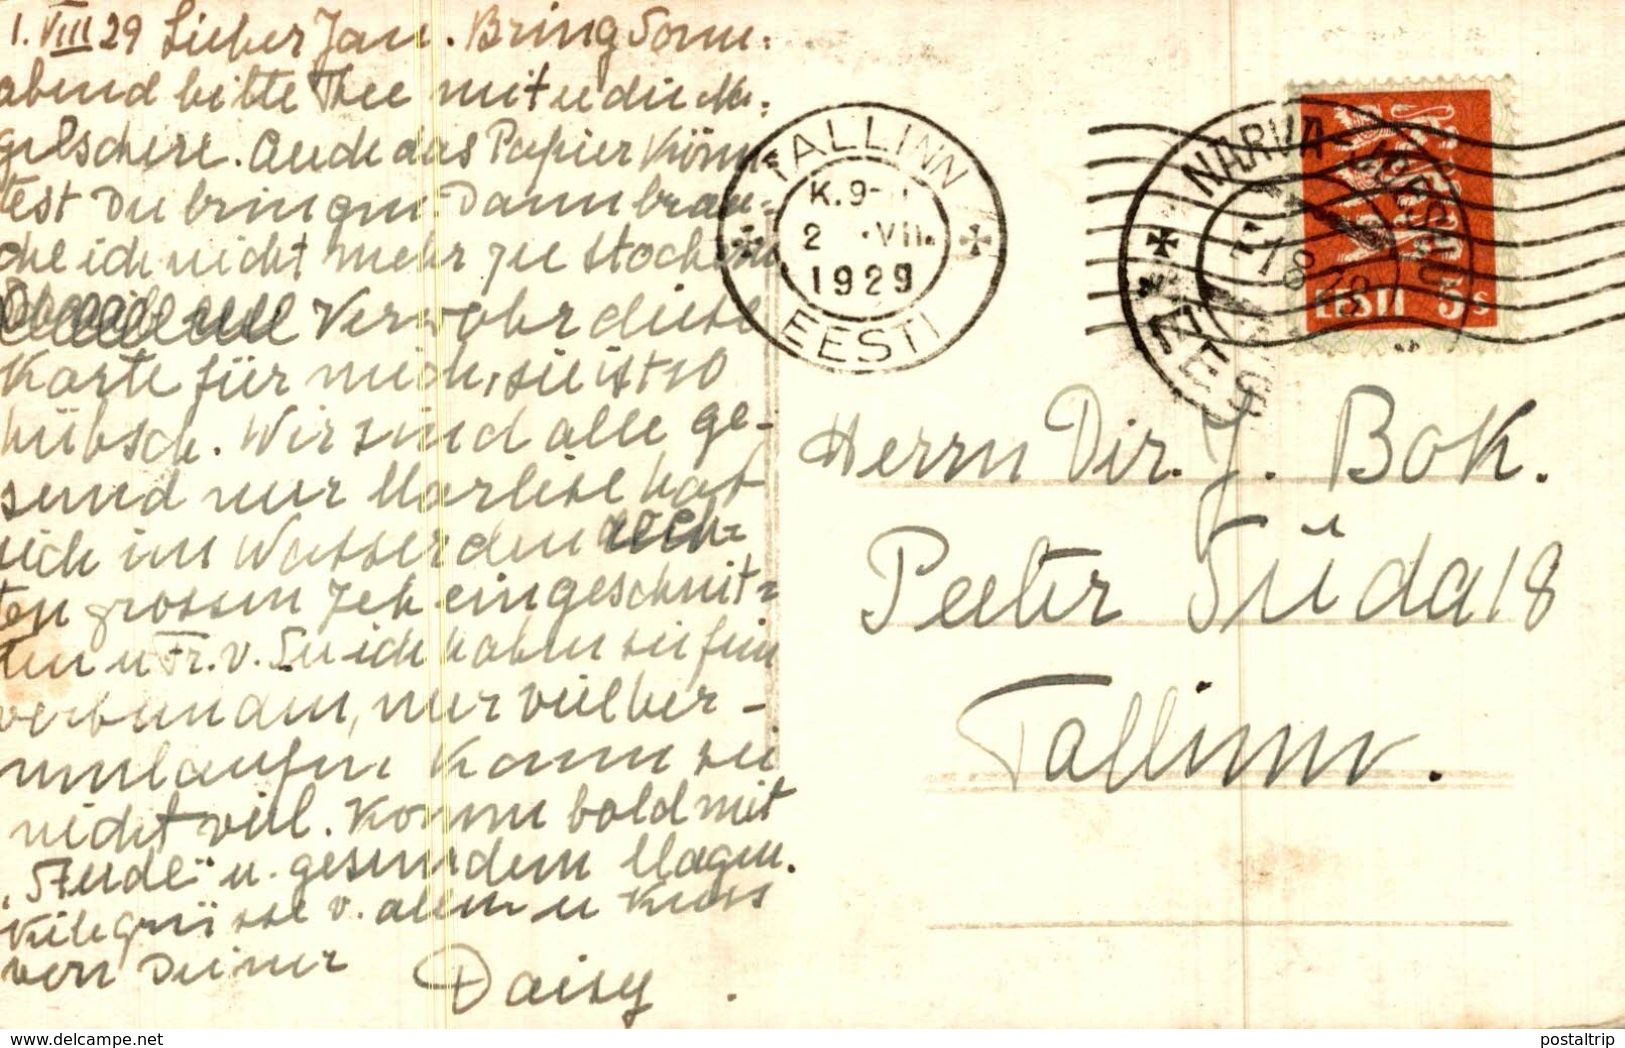 1. VIII 29 Lieber Jan. Bring Sonn=
abend bitte Thee mit u die Nä=
gelschere. Auch das Papier könn=
test Du bringen. Dann brau=
che ich nicht mehr zu
Verwahr diese
Karte für mich, sie ist so
hübsch. Wir sind alle ge-
sund nur Marlise hat
sich im Wasser den
ten grossen Zeh eingeschnit=
ten u Fr. v. S u ich haben sie fein
verbunden, nur viel her-
umlaufen kann sie
nicht viel. Komm bald mit
" u. gesundem Magen.
Viele Grüsse v. allen u Kuss
von Deiner
Daisy.
TALLINN
K. 9-
2 .VII.
1929
EESTI
NARVA-JÕESUU
1 8 29
EESTI
EESTI 5 S
Herrn Dir. J. Bok.
Peeter Süda 18
Tallinn.
www.delcampe.net
postaltrip